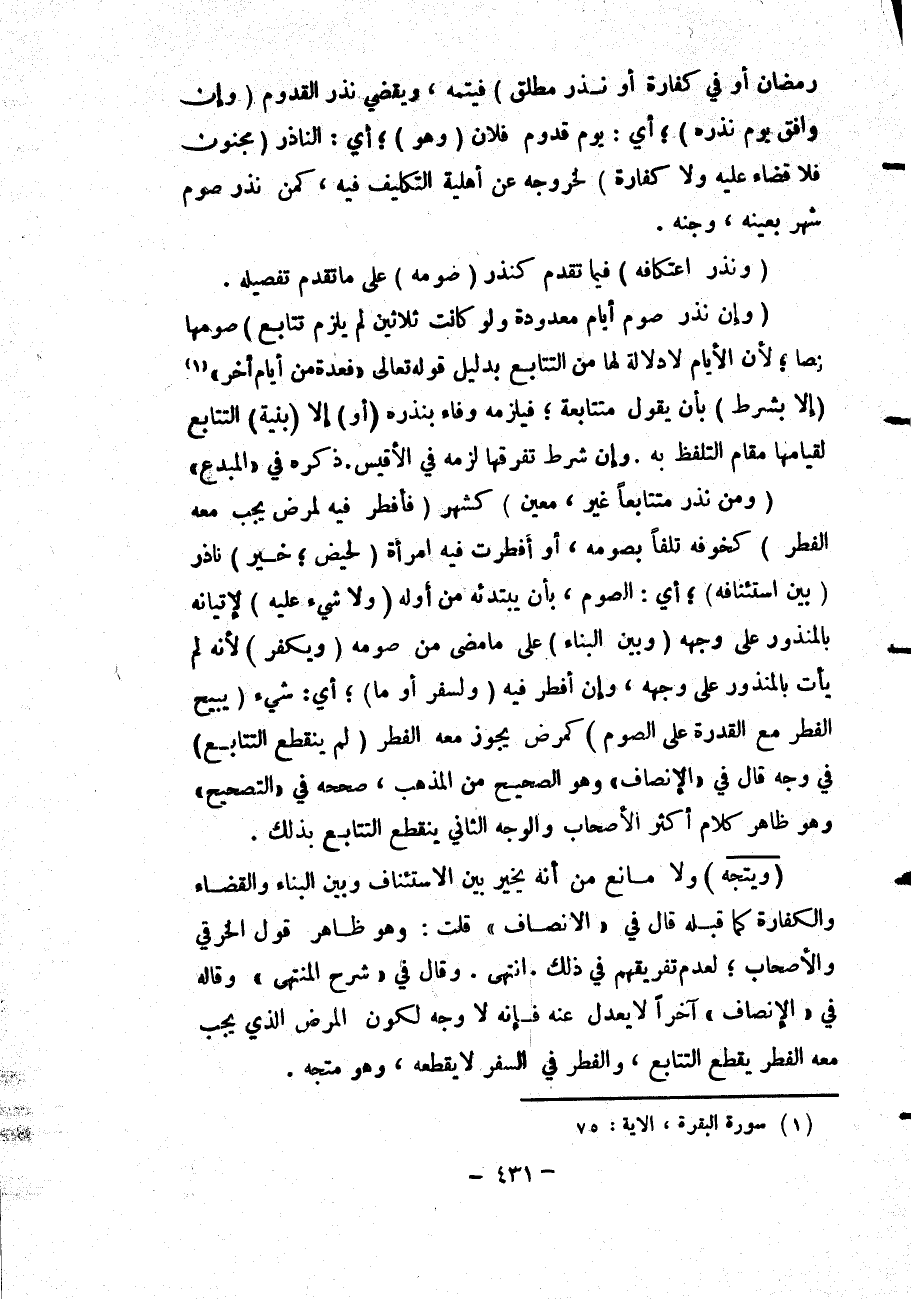 رمضان أو في كفارة أو نـذر مطلق ) فيتمه ، ويقضي نذر القدوم ( وإن
وافق يوم نذره ) ؛ أي : يوم قدوم فلان ( وهو ) ؛ أي : الناذر ( مجنون
فلا قضاء عليه ولا كفارة ) لخروجه عن أهلية التكليف فيه ، كمن نذر صوم
شهر بعينه ، وجنه .
( ونذر اعتكافه ) فيما تقدم كنذر ( صومه ) على ماتقدم تفصيله .
( وإن نذر صوم أيام معدودة ولو كانت ثلاثين لم يلزم تتابع ) صومها
نصا ؛ لأن الأيام لادلالة لها من التتابع بدليل قوله تعالى «فعدة من أيام أخر» (١)
(إلا بشرط ) بأن يقول متتابعة ؛ فيلزمه وفاء بنذره (أو) إلا (بنية) التتابع
لقيامها مقام التلفظ به . وإن شرط تفرقها لزمه في الأقيس. ذكره في «المبدع»
( ومن نذر متتابعاً غير ، معين ) كشهر ( فأفطر فيه لمرض يجب معه
الفطر ) كخوفه تلفاً بصومه ، أو أفطرت فيه امرأة ( لحيض ؛ خـير ) ناذر
( بين استئنافه) ؛ أي : الصوم ، بأن يبتدئه من أوله ( ولا شيء عليه ) لإتيانه
بالمنذور على وجهه ( وبين البناء ) على مامضى من صومه ( ويكفر ) لأنه لم
يأت بالمنذور على وجهه ، وإن أفطر فيه ( ولسفر أو ما) ؛ أي: شيء ( يبيح
الفطر مع القدرة على الصوم ) كمرض يجوز معه الفطر ( لم ينقطع التتابـع)
في وجه قال في «الإنصاف» وهو الصحيح من المذهب ، صححه في «التصحيح»
وهو ظاهر كلام أكثر الأصحاب والوجه الثاني ينقطع التتابع بذلك .
( ويتجه ) ولا مـانع من أنه يخير بين الاستئناف وبين البناء والقضـاء
والكفارة كما قبـله قال في « الانصـاف » قلت : وهو ظـاهر قول الخرقي
والأصحاب ؛ لعدم تفريقهم في ذلك . انتهى . وقال في « شرح المنتهى » وقاله
في « الإنصاف » آخراً لا يعدل عنه فـإنه لا وجه لكون المرض الذي يجب
معه الفطر يقطع التتابع ، والفطر في السفر لا يقطعه ، وهو متجه .
(١) سورة البقرة ، الاية : ٧٥
- ٤٣١ -